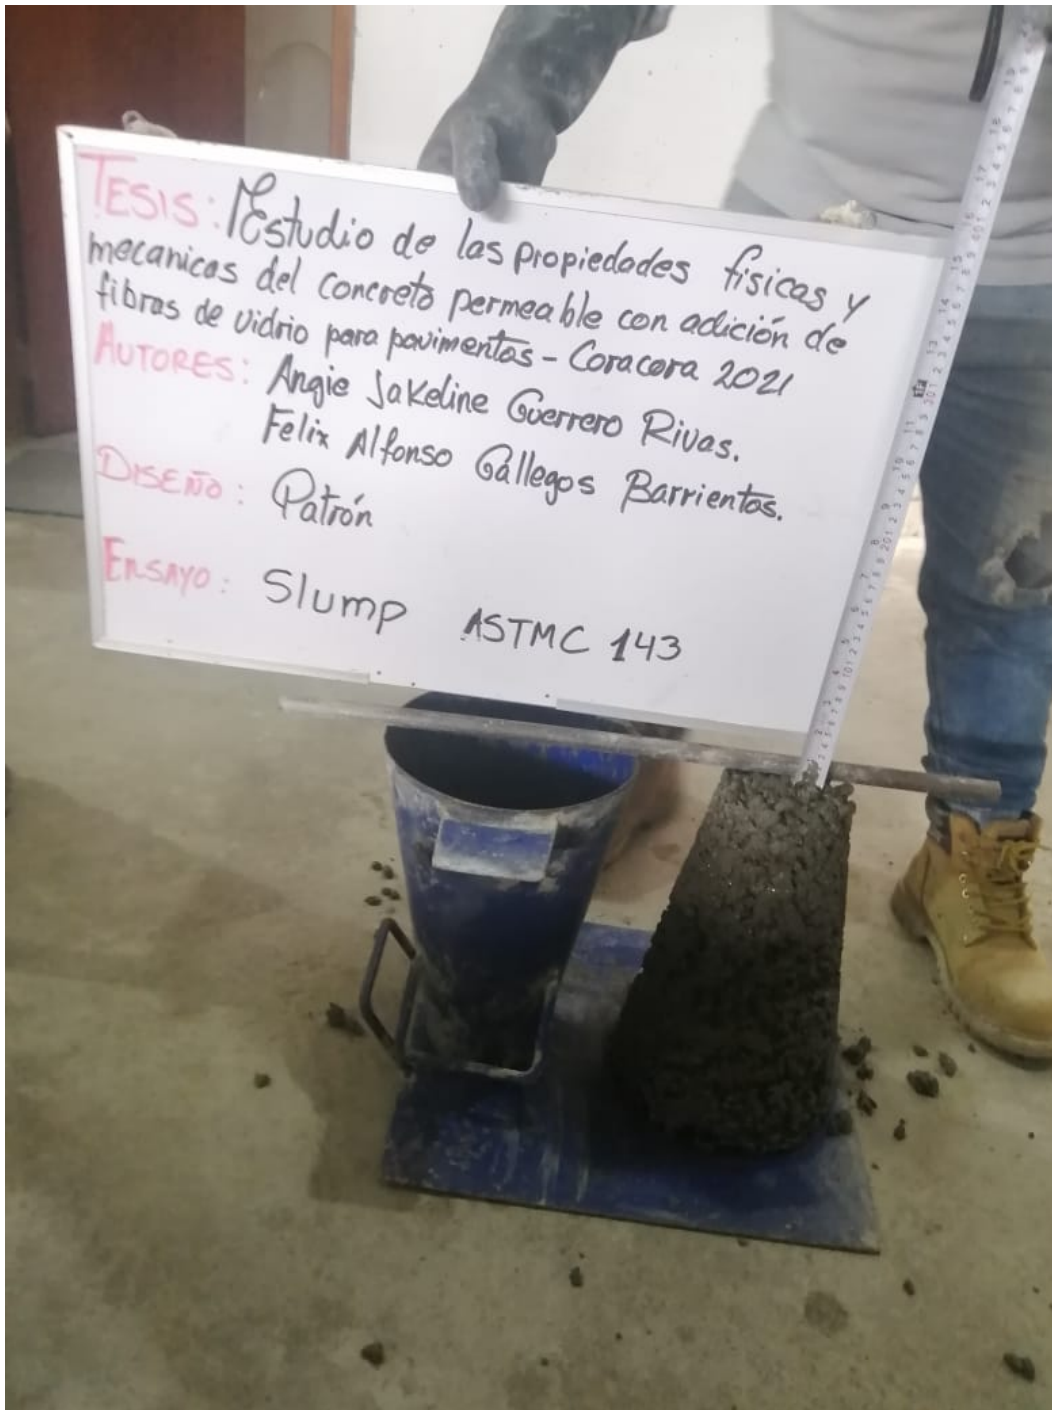 TESIS: Estudio de las propiedades físicas y
mecanicas del concreto permeable con adición de
fibras de vidrio para pavimentos - Coracora 2021
AUTORES: Angie Jakeline Guerrero Rivas.
Felix Alfonso Gallegos Barrientos.
DISEÑO: Patrón
ENSAYO: Slump ASTMC 143